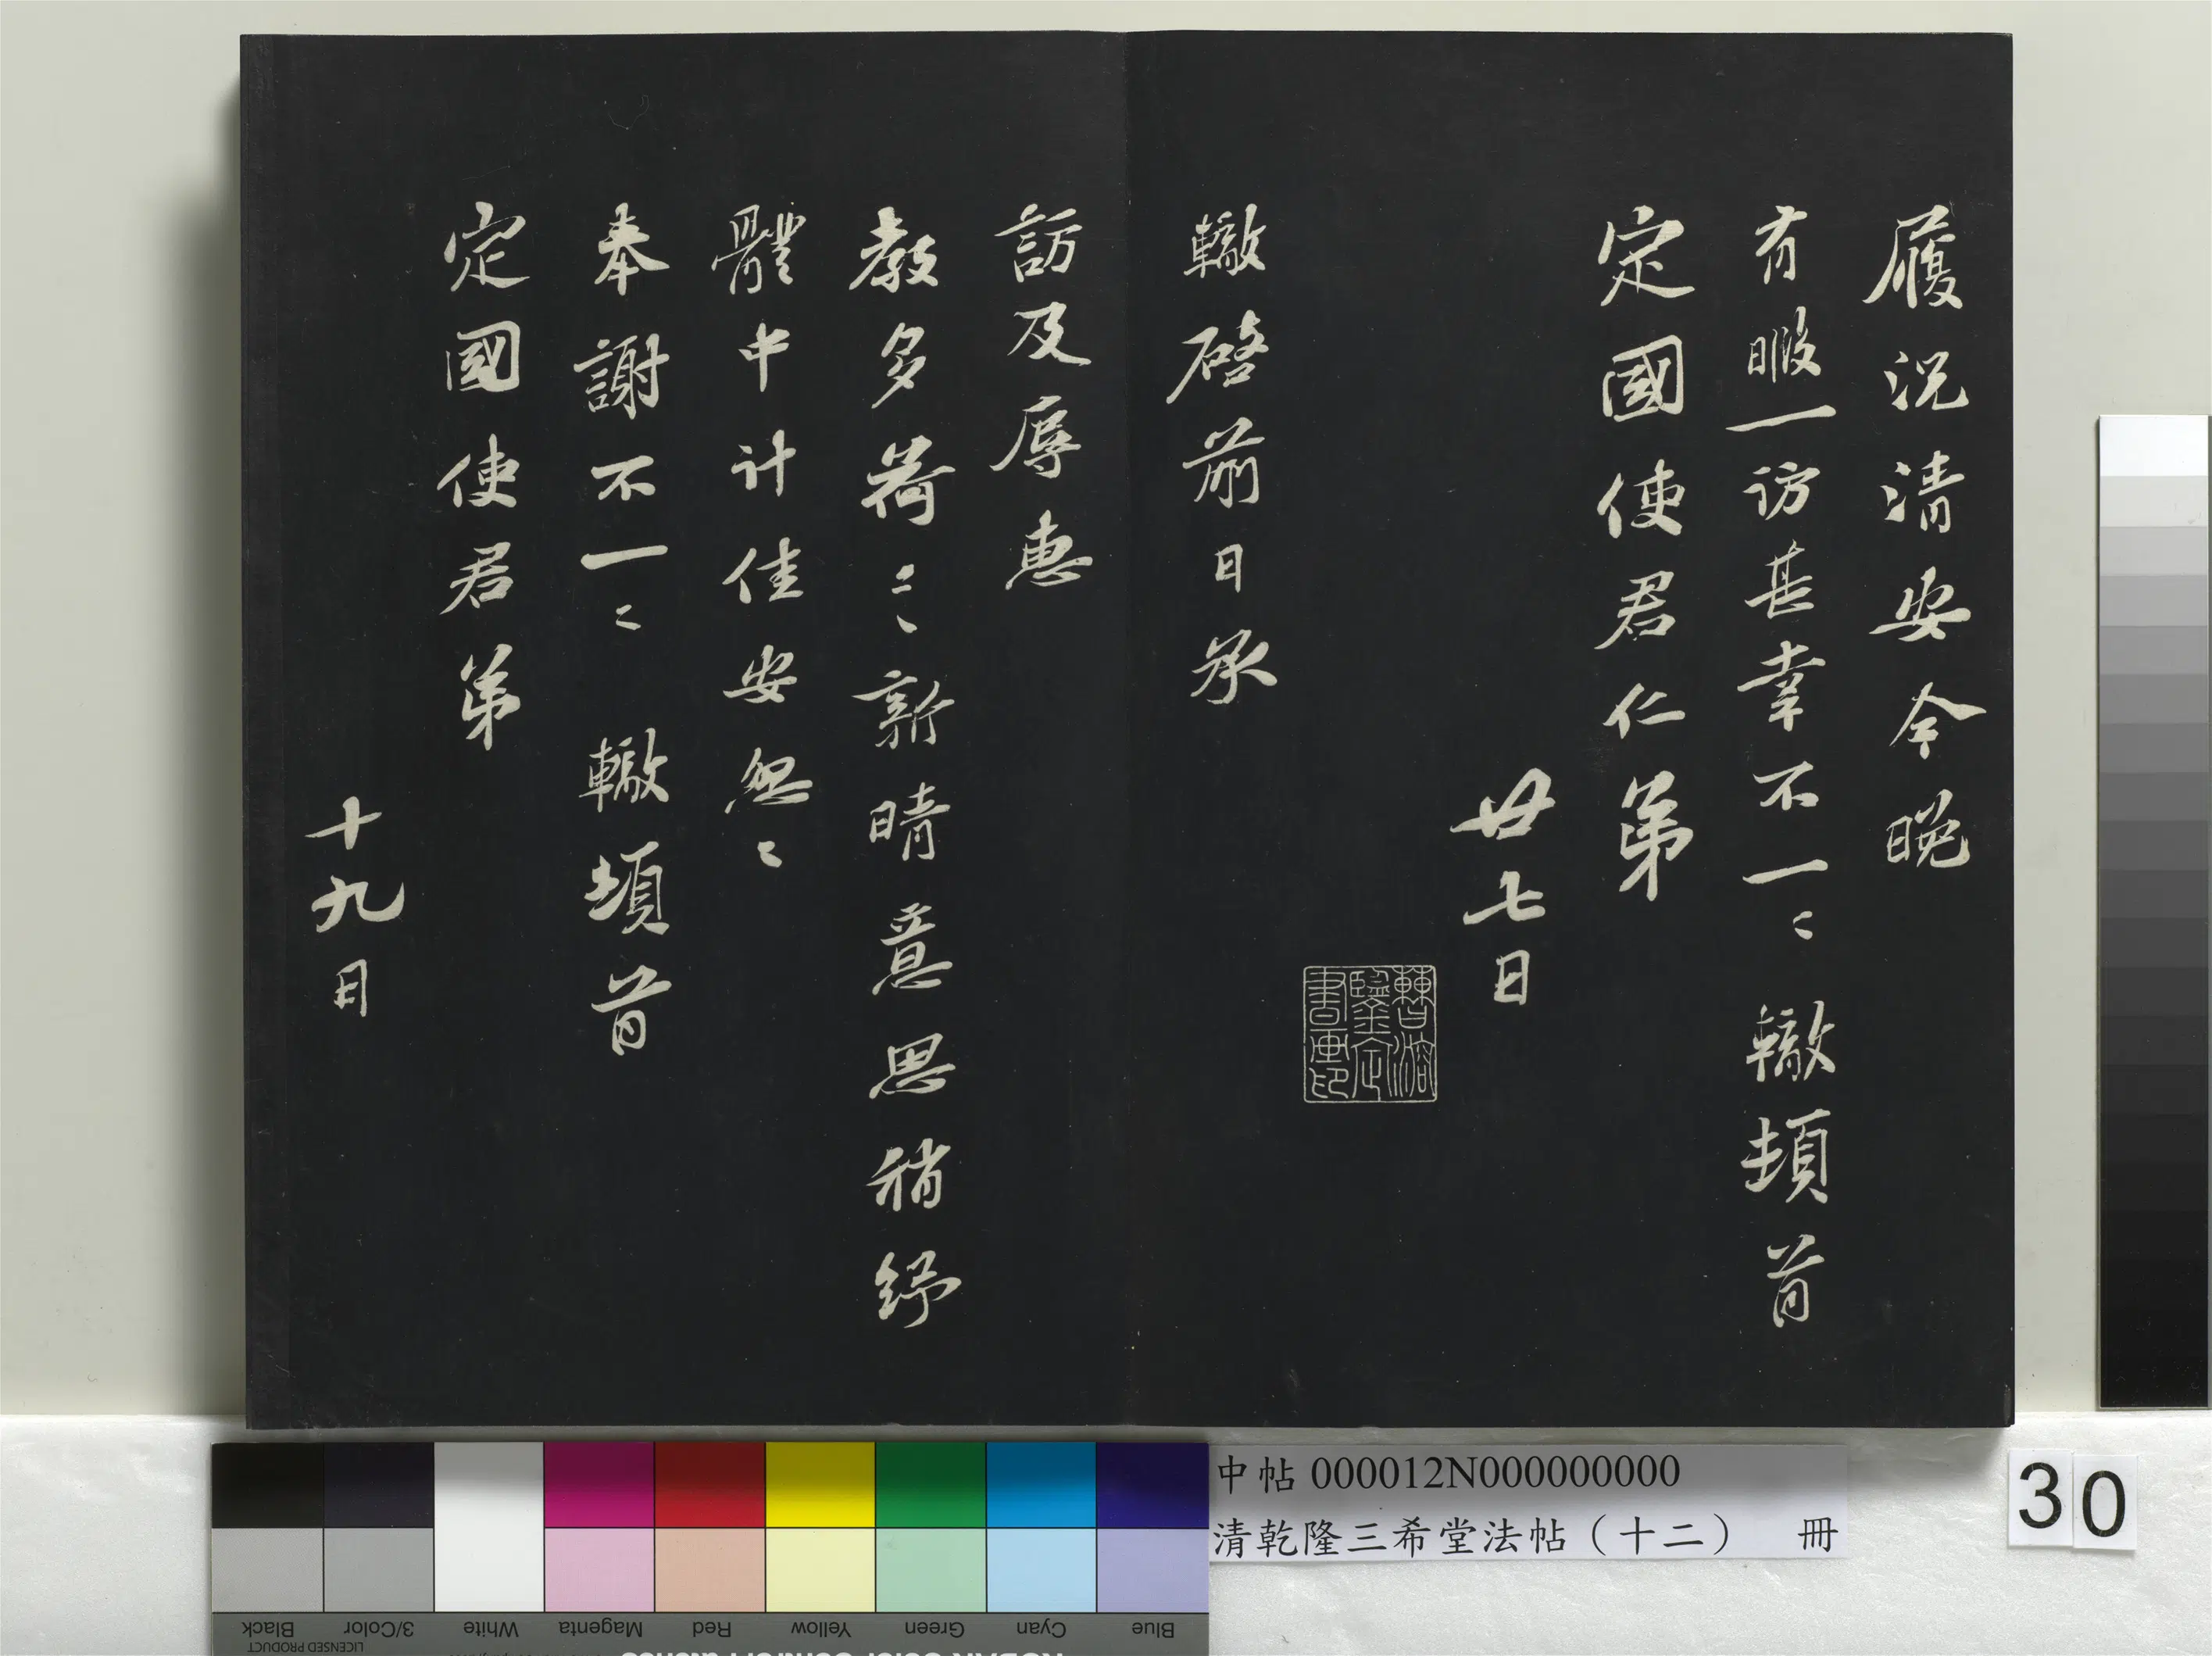 履況清安今晚
有暇一訪甚幸不一〻轍頓首
定國使君仁弟
廿七日
轍啓前日承
訪及辱惠
教多荷〻〻新晴意思稍紓
體中計佳安無〻
奉謝不一〻轍頓首
定國使君弟
十九日
中帖 000012N000000000
清乾隆三希堂法帖（十二） 冊
30
Black
3/Color
White
Magenta
Red
Yellow
Green
Cyan
Blue
LICENSED PRODUCT